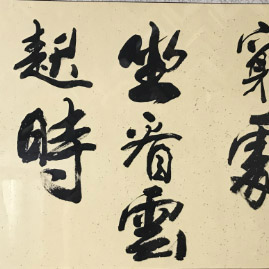 窮處
坐看雲
起時